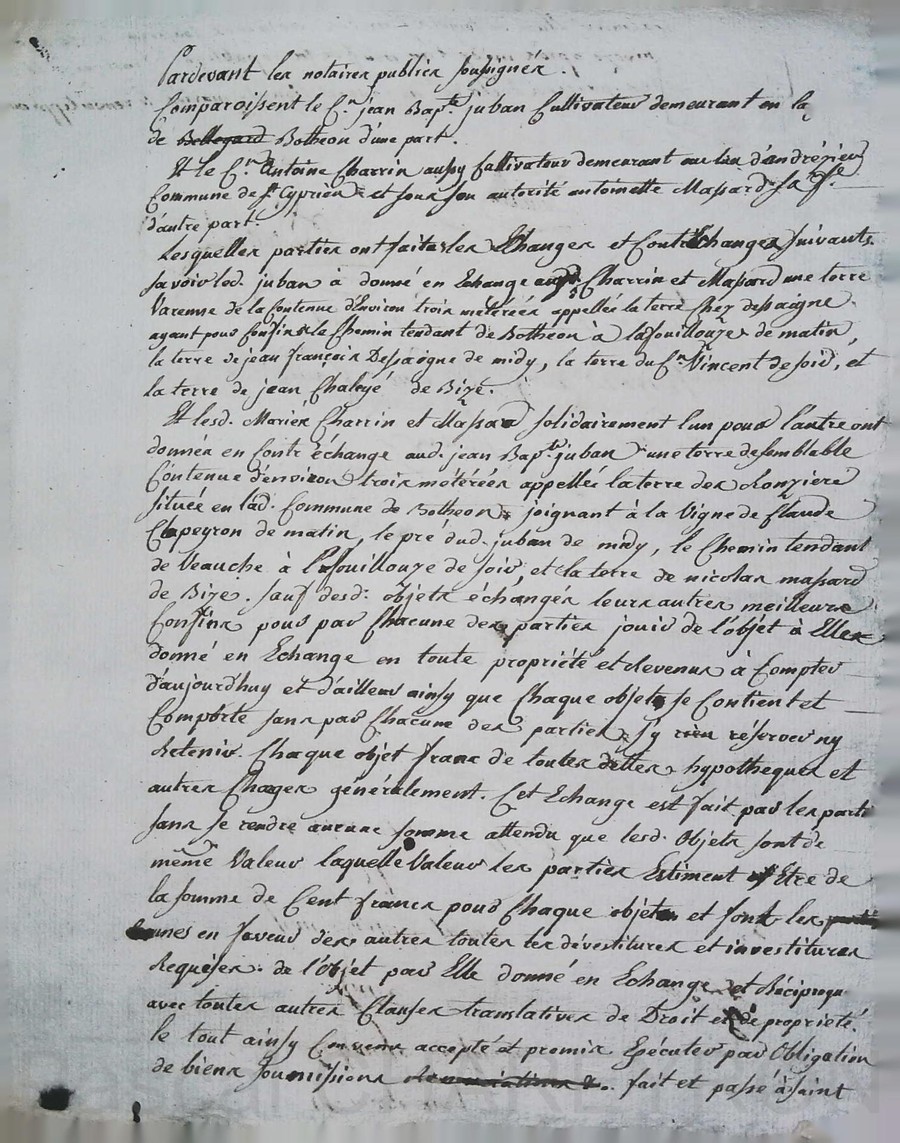 Pardevant les notaires publics soussignés.
Comparoissent le C.n jean Bap.te juban Cultivateur demeurant en la C.
de Bellegard Botheon d'une part.
Et le C.n Antoine Charrin aussy Cultivateur demeurant au lieu d'andrézieu
Commune de St Cyprien et sous son autorité antoinette Massard sa f.e
d'autre part.
Lesquelles parties ont faits les Echanges et Contr'Echanges suivants.
savoir led. juban à donné en Echange auxd. Charrin et Massard une terre
Varenne de la Contenue d'Environ trois métérées appellée la terre Chez dessaigne
ayant pour Confins le Chemin tendant de Botheon à lafouillouze de matin,
la terre de jean françois Dessaigne de midy, la terre du C.n Vincent de soir, et
la terre de jean Chaleyé de Bize.
Et lesd. Mariés Charrin et Massard solidairement l'un pour l'autre ont
donnés en Contr'échange aud. jean Bap.te juban une terre de semblable
Contenue d'environ trois métérées appellée la terre des Ronzière
située en lad. Commune de Botheon joignant à la Vigne de Claude
Clapeyron de matin, le pré dud. juban de midy, le Chemin tendant
de Veauche à Lafouillouze de soir, et la terre de nicolas massard
de Bize. sauf desd. objets échangés leurs autres meilleurs
Confins pour par Chacune des parties jouir de l'objet à Elles
donné en Echange en toute propriété et Revenus à Compter
d'aujourd'huy et d'ailleurs ainsy que Chaque objets se Contient et
Comporte sans par Chacune des parties sy rien réserver ny
Retenir. Chaque objet franc de toutes dettes hypotheques et
autres Charges généralement. Cet Echange est fait par les parti
sans se rendre aucune somme attendu que lesd. Objets sont de
même Valeur laquelle Valeur les parties Estiment Etre de
la somme de Cent francs pour Chaque objet et font les
unes en faveur des autres toutes les dévestitures et investitures
Requises. de l'Objet par Elle donné en Echange et Réciproqu
avec toutes autres Clauses translatives de Droit et de propriété.
le tout ainsy Convenu accepté et promis Exécuter par Obligation
de biens soumissions Renonciations &. fait et passé à Saint